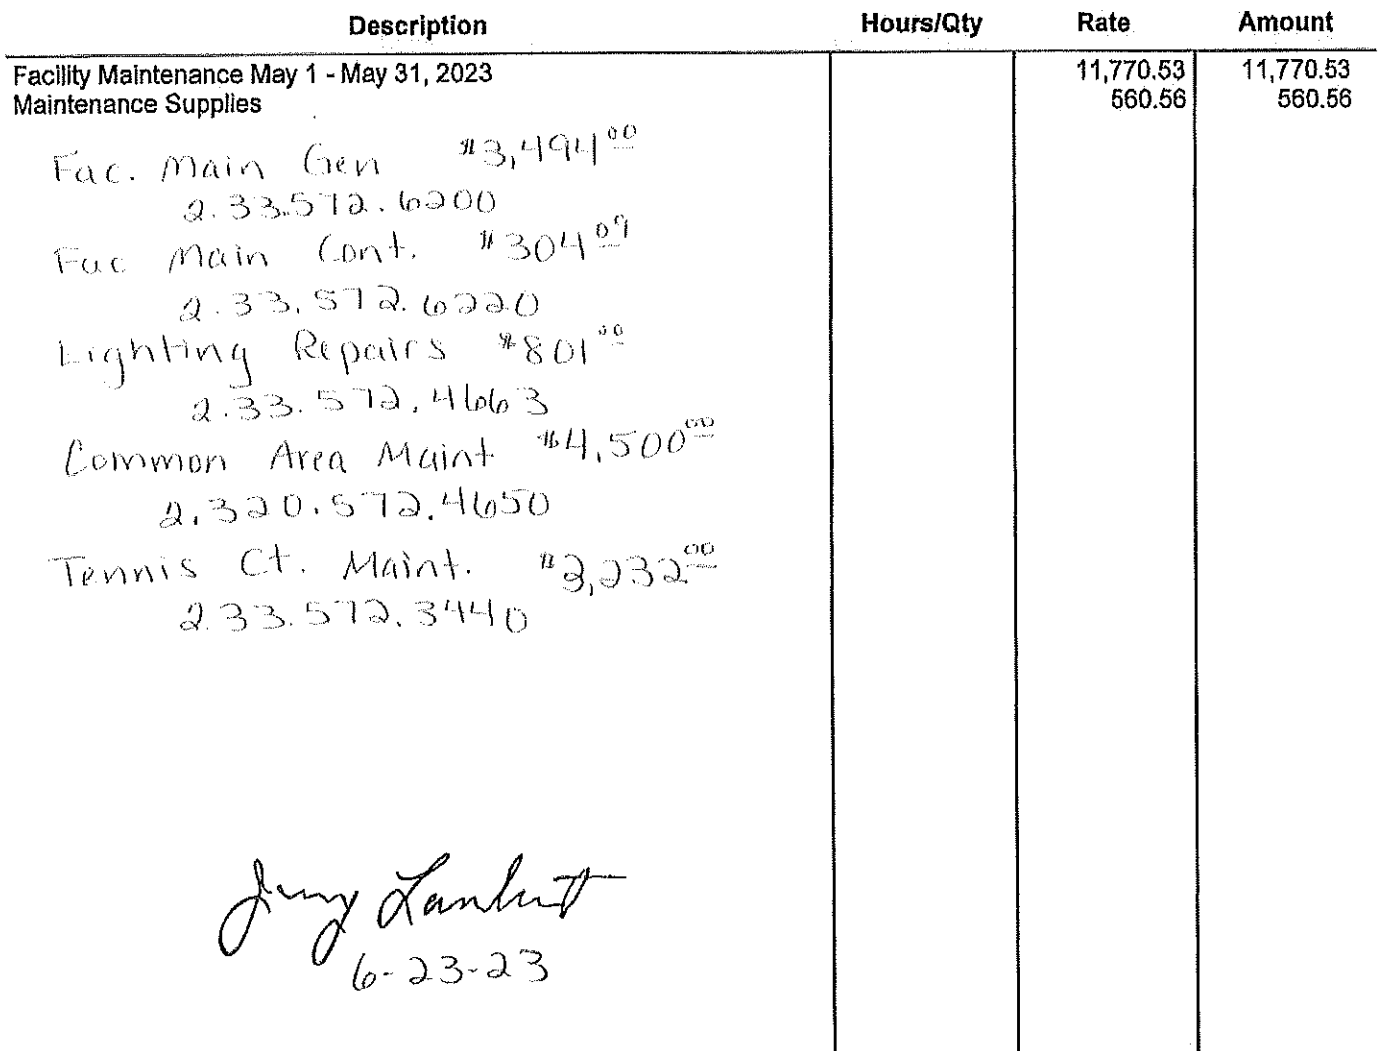 Description Hours/Qty Rate Amount
Facility Maintenance May 1 - May 31, 2023 11,770.53 11,770.53
Maintenance Supplies 560.56 560.56
Fac. Main Gen $3,494.00
2.33.572.6200
Fac Main Cont. $304.09
2.33.572.6220
Lighting Repairs $801.00
2.33.572.4663
Common Area Maint $4,500.00
2.320.572.4650
Tennis Ct. Maint. $3,232.00
2.33.572.3440
Jerry Lambert
6-23-23